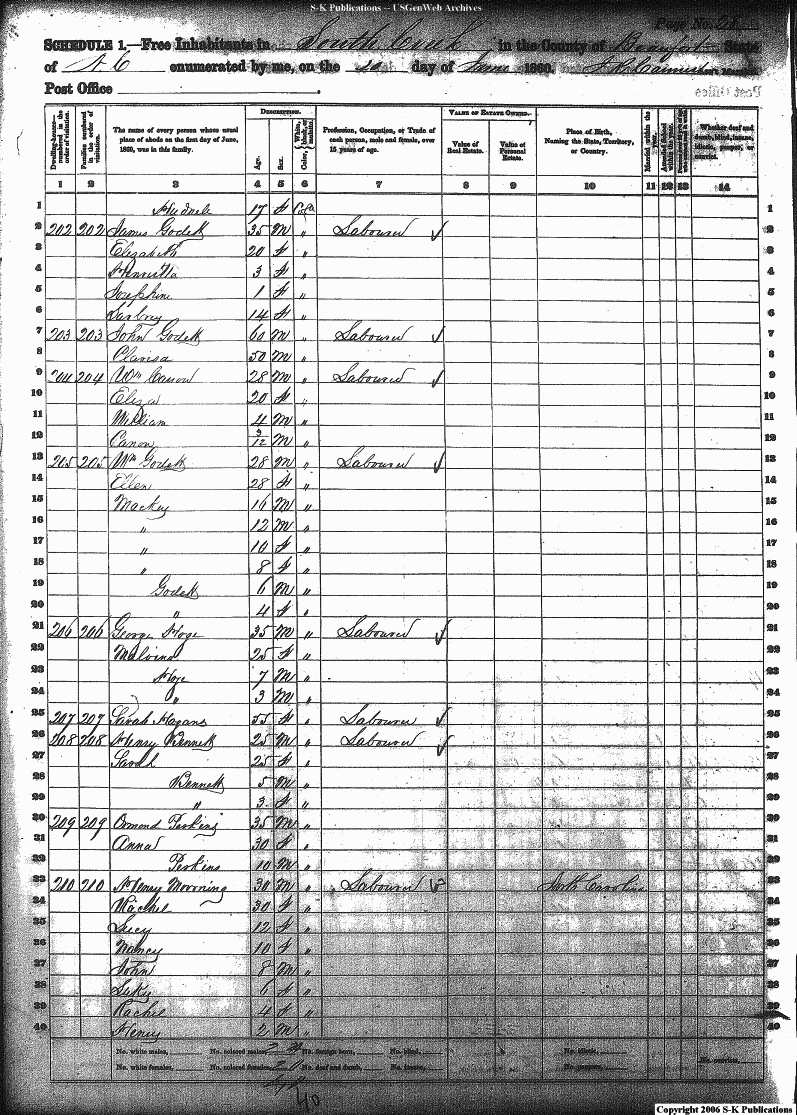 S-K Publications -- USGenWeb Archives
Page No. 28
SCHEDULE 1.—Free Inhabitants in South Creek in the County of Beaufort State
of N C enumerated by me, on the 20 day of June 1860.
Post Office
Dwelling-houses—numbered in the order of visitation. Families numbered in the order of visitation. The name of every person whose usual place of abode on the first day of June, 1860, was in this family. DESCRIPTION. Age. Sex. Color, White, black, or mulatto. Profession, Occupation, or Trade of each person, male and female, over 15 years of age. VALUE OF ESTATE OWNED. Value of Real Estate. Value of Personal Estate. Place of Birth, Naming the State, Territory, or Country. Married within the year. Attended School within the year. Whether deaf and dumb, blind, insane, idiotic, pauper, or convict.
1 2 3 4 5 6 7 8 9 10 11 12 13 14
1 17 f 1
2 202 202 James Godett 35 M " Labourer ✓ 2
3 Elizabeth 20 f " 3
4 Henrietta 3 f " 4
5 Josephine 1 f " 5
6 14 f " 6
7 203 203 John Godett 60 M " Labourer ✓ 7
8 Clarisa 50 M " 8
9 204 204 Wm Canon 28 M " Labourer ✓ 9
10 Eliza 20 f " 10
11 William 4 M " 11
12 Canon 3/12 M " 12
13 205 205 Wm Godett 28 M " Labourer ✓ 13
14 Ellen 28 f " 14
15 Mackey 16 M " 15
16 " 12 M " 16
17 " 10 f " 17
18 " 8 f " 18
19 Godett 6 M " 19
20 " 4 f " 20
21 206 206 George Hoge 35 M " Labourer ✓ 21
22 Malvina 25 f " 22
23 Hoge 7 M " 23
24 " 3 M " 24
25 207 207 Sarah Hagans 55 f " Labourer ✓ 25
26 208 208 Henry Bennett 25 M " Labourer ✓ 26
27 Sarah 25 f " 27
28 Bennett 5 M " 28
29 " 3 f " 29
30 209 209 Ormond Perkins 35 M " 30
31 Anna 30 f " 31
32 Perkins 10 M " 32
33 210 210 Henry Morning 30 M " Labourer ✓ North Carolina 33
34 Rachel 30 f " 34
35 Lucy 12 f " 35
36 Nancy 10 f " 36
37 John 8 M " 37
38 6 f " 38
39 Rachel 4 f " 39
40 Henry 2 M " 40
No. white males, No. colored males, No. foreign born, No. blind, No. idiotic, No. convicts,
No. white females, No. colored females, 20 No. deaf and dumb, No. insane, No. paupers,
40
Copyright 2006 S-K Publications